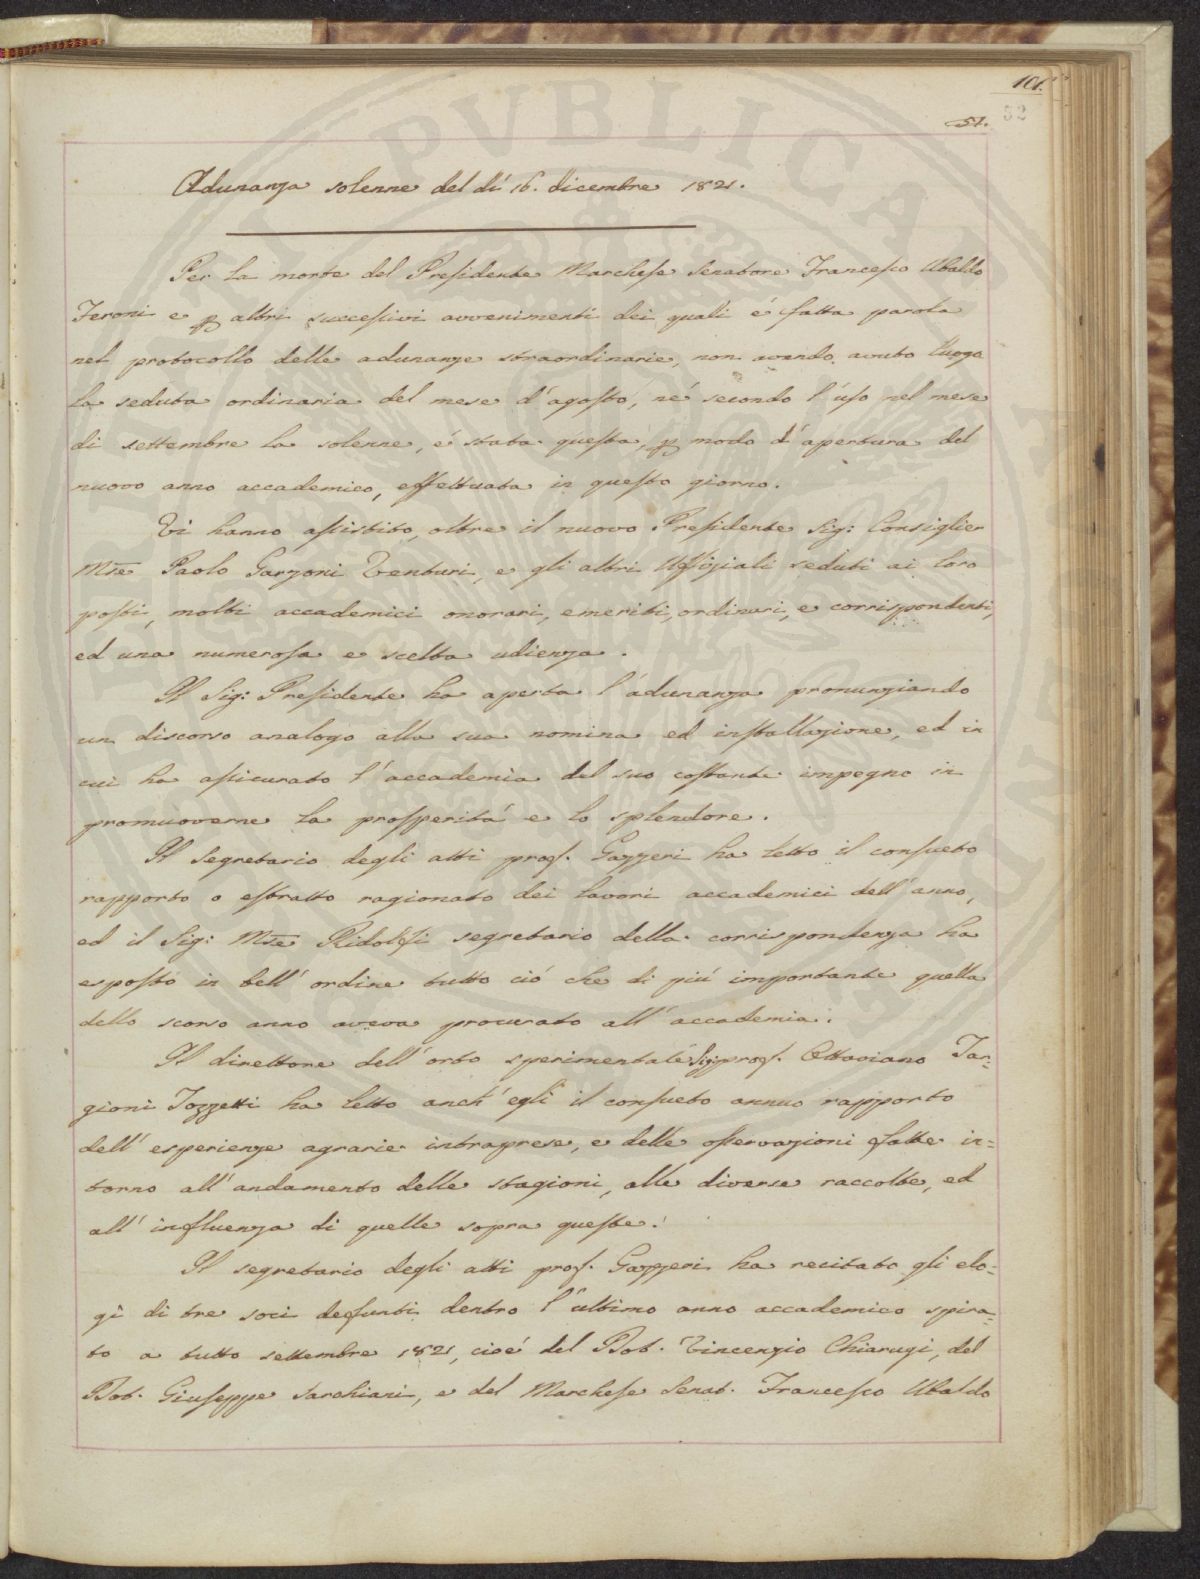 101.
51. 52
Adunanza solenne del dì 16. dicembre 1821.
Per la morte del Presidente Marchese Senatore Francesco Ubaldo
Feroni e p altri successivi avvenimenti dei quali è fatta parola
nel protocollo delle adunanze straordinarie, non avendo avuto luogo
la seduta ordinaria del mese d'agosto, né secondo l'uso nel mese
di settembre la solenne, é stata questa, p modo d'apertura del
nuovo anno accademico, effettuata in questo giorno.
Vi hanno assistito, oltre il nuovo Presidente Sig: Consiglier
Mse Paolo Garzoni Venturi, e gli altri Uffiziali seduti ai loro
posti, molti accademici onorari, emeriti, ordinari, e corrispondenti,
ed una numerosa e scelta udienza.
Il Sig: Presidente ha aperta l'adunanza pronunziando
un discorso analogo alla sua nomina ed installazione, ed in
cui ha assicurato l'accademia del suo costante impegno in
promuoverne la prosperitá e lo splendore.
Il Segretario degli atti prof. Gazzeri ha letto il consueto
rapporto o estratto ragionato dei lavori accademici dell'anno,
ed il Sig: Mse Ridolfi segretario della corrispondenza ha
esposto in bell'ordine tutto ció che di piú importante quella
dello scorso anno aveva procurato all'accademia.
Il direttore dell'orto sperimentale Sig: prof. Ottaviano Tar=
gioni Tozzetti ha letto anch'egli il consueto annuo rapporto
dell'esperienze agrarie intraprese, e delle osservazioni fatte in=
torno all'andamento delle stagioni, alle diverse raccolte, ed
all'influenza di quelle sopra queste.
Il segretario degli atti prof. Gazzeri ha recitato gli elo=
gi di tre soci defunti dentro l'ultimo anno accademico spira=
to a tutto settembre 1821, cioé del Dot. Vincenzio Chiarugi, del
Dot. Giuseppe Sarchiani, e del Marchese Senat. Francesco Ubaldo